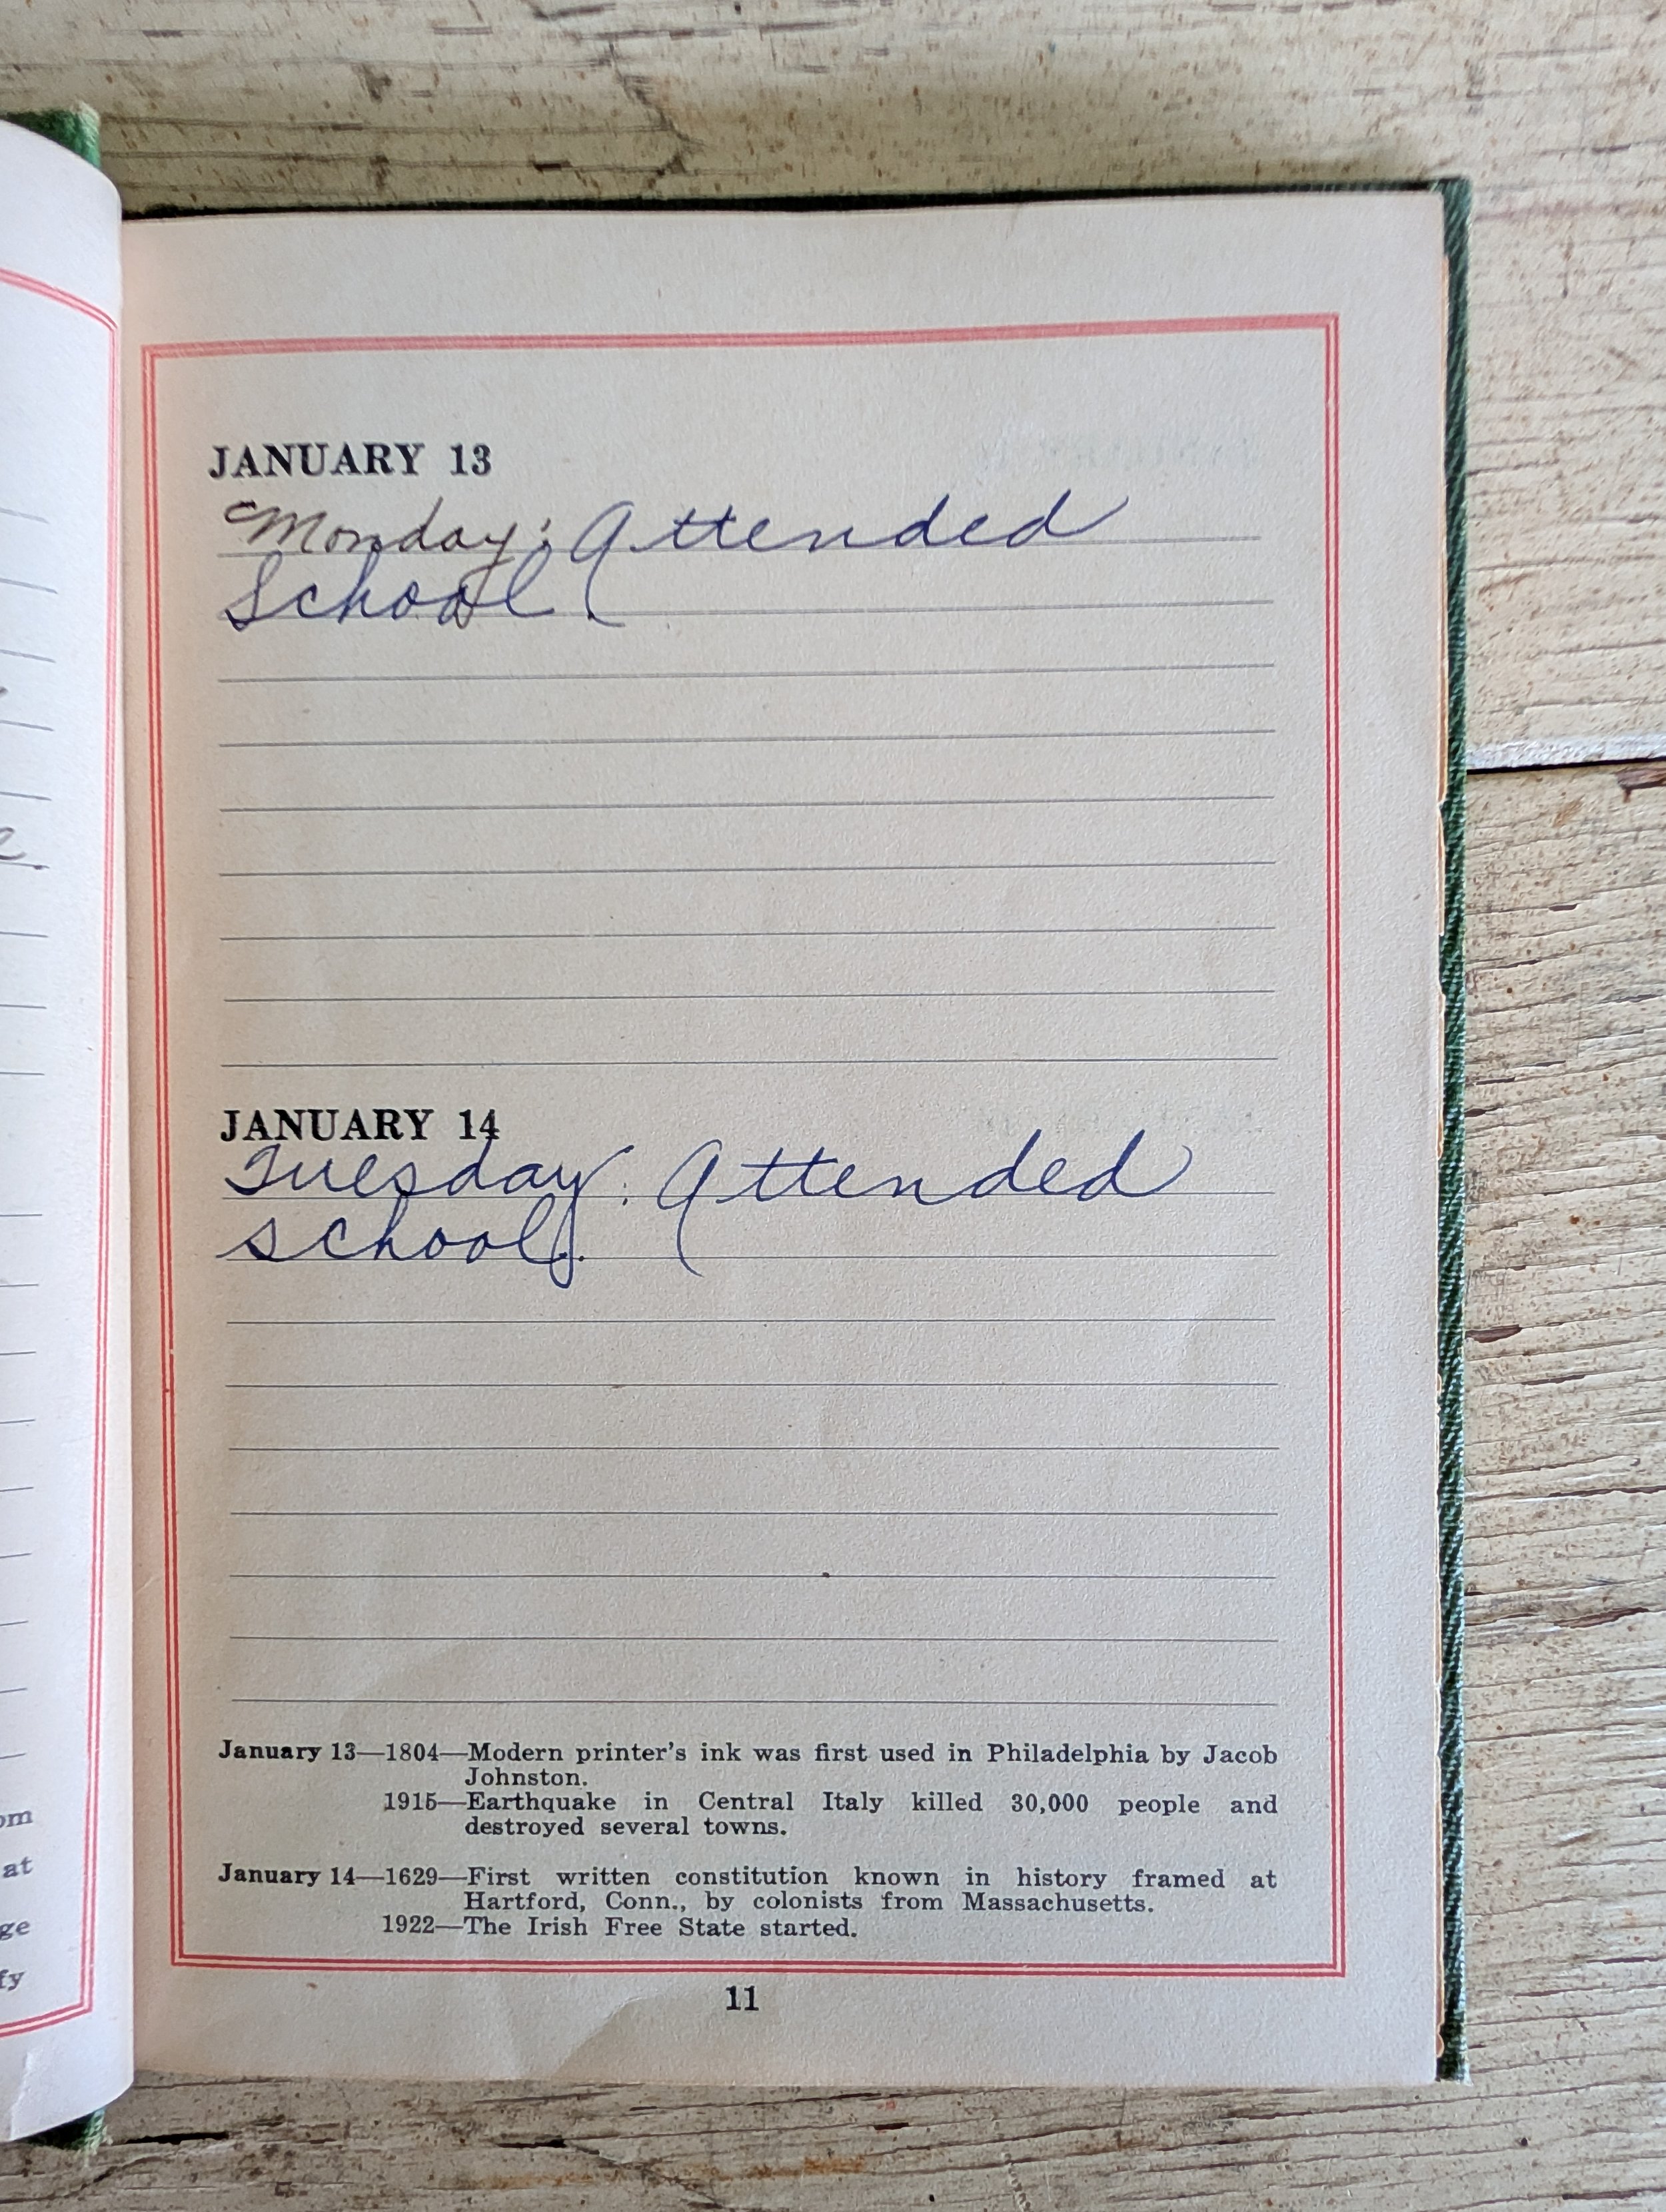 JANUARY 13
Monday: Attended
School.
JANUARY 14
Tuesday: Attended
school.
January 13—1804—Modern printer's ink was first used in Philadelphia by Jacob
Johnston.
1915—Earthquake in Central Italy killed 30,000 people and
destroyed several towns.
January 14—1629—First written constitution known in history framed at
Hartford, Conn., by colonists from Massachusetts.
1922—The Irish Free State started.
11
om
at
ge
fy